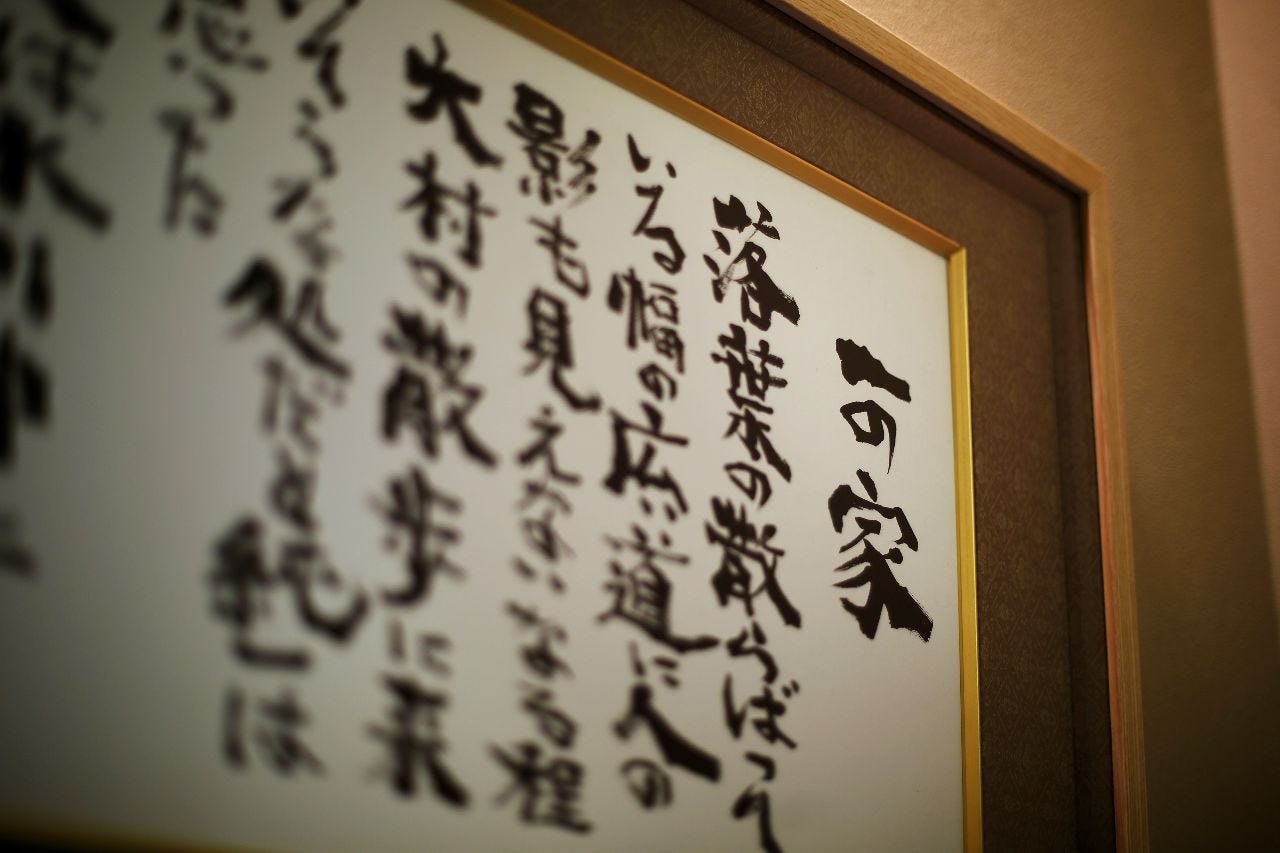 一の家
落葉の散らばって
いる幅の広い道に人の
影も見えないなる程
大村の散歩に来
そうな処だと純一は
思った